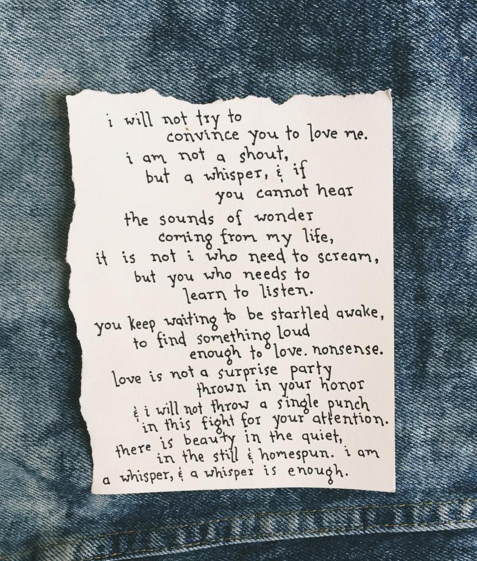 i will not try to
convince you to love me.
i am not a shout,
but a whisper, & if
you cannot hear
the sounds of wonder
coming from my life,
it is not i who need to scream,
but you who needs to
learn to listen.
you keep waiting to be startled awake,
to find something loud
enough to love. nonsense.
love is not a surprise party
thrown in your honor
& i will not throw a single punch
in this fight for your attention.
there is beauty in the quiet,
in the still & homespun. i am
a whisper, & a whisper is enough.